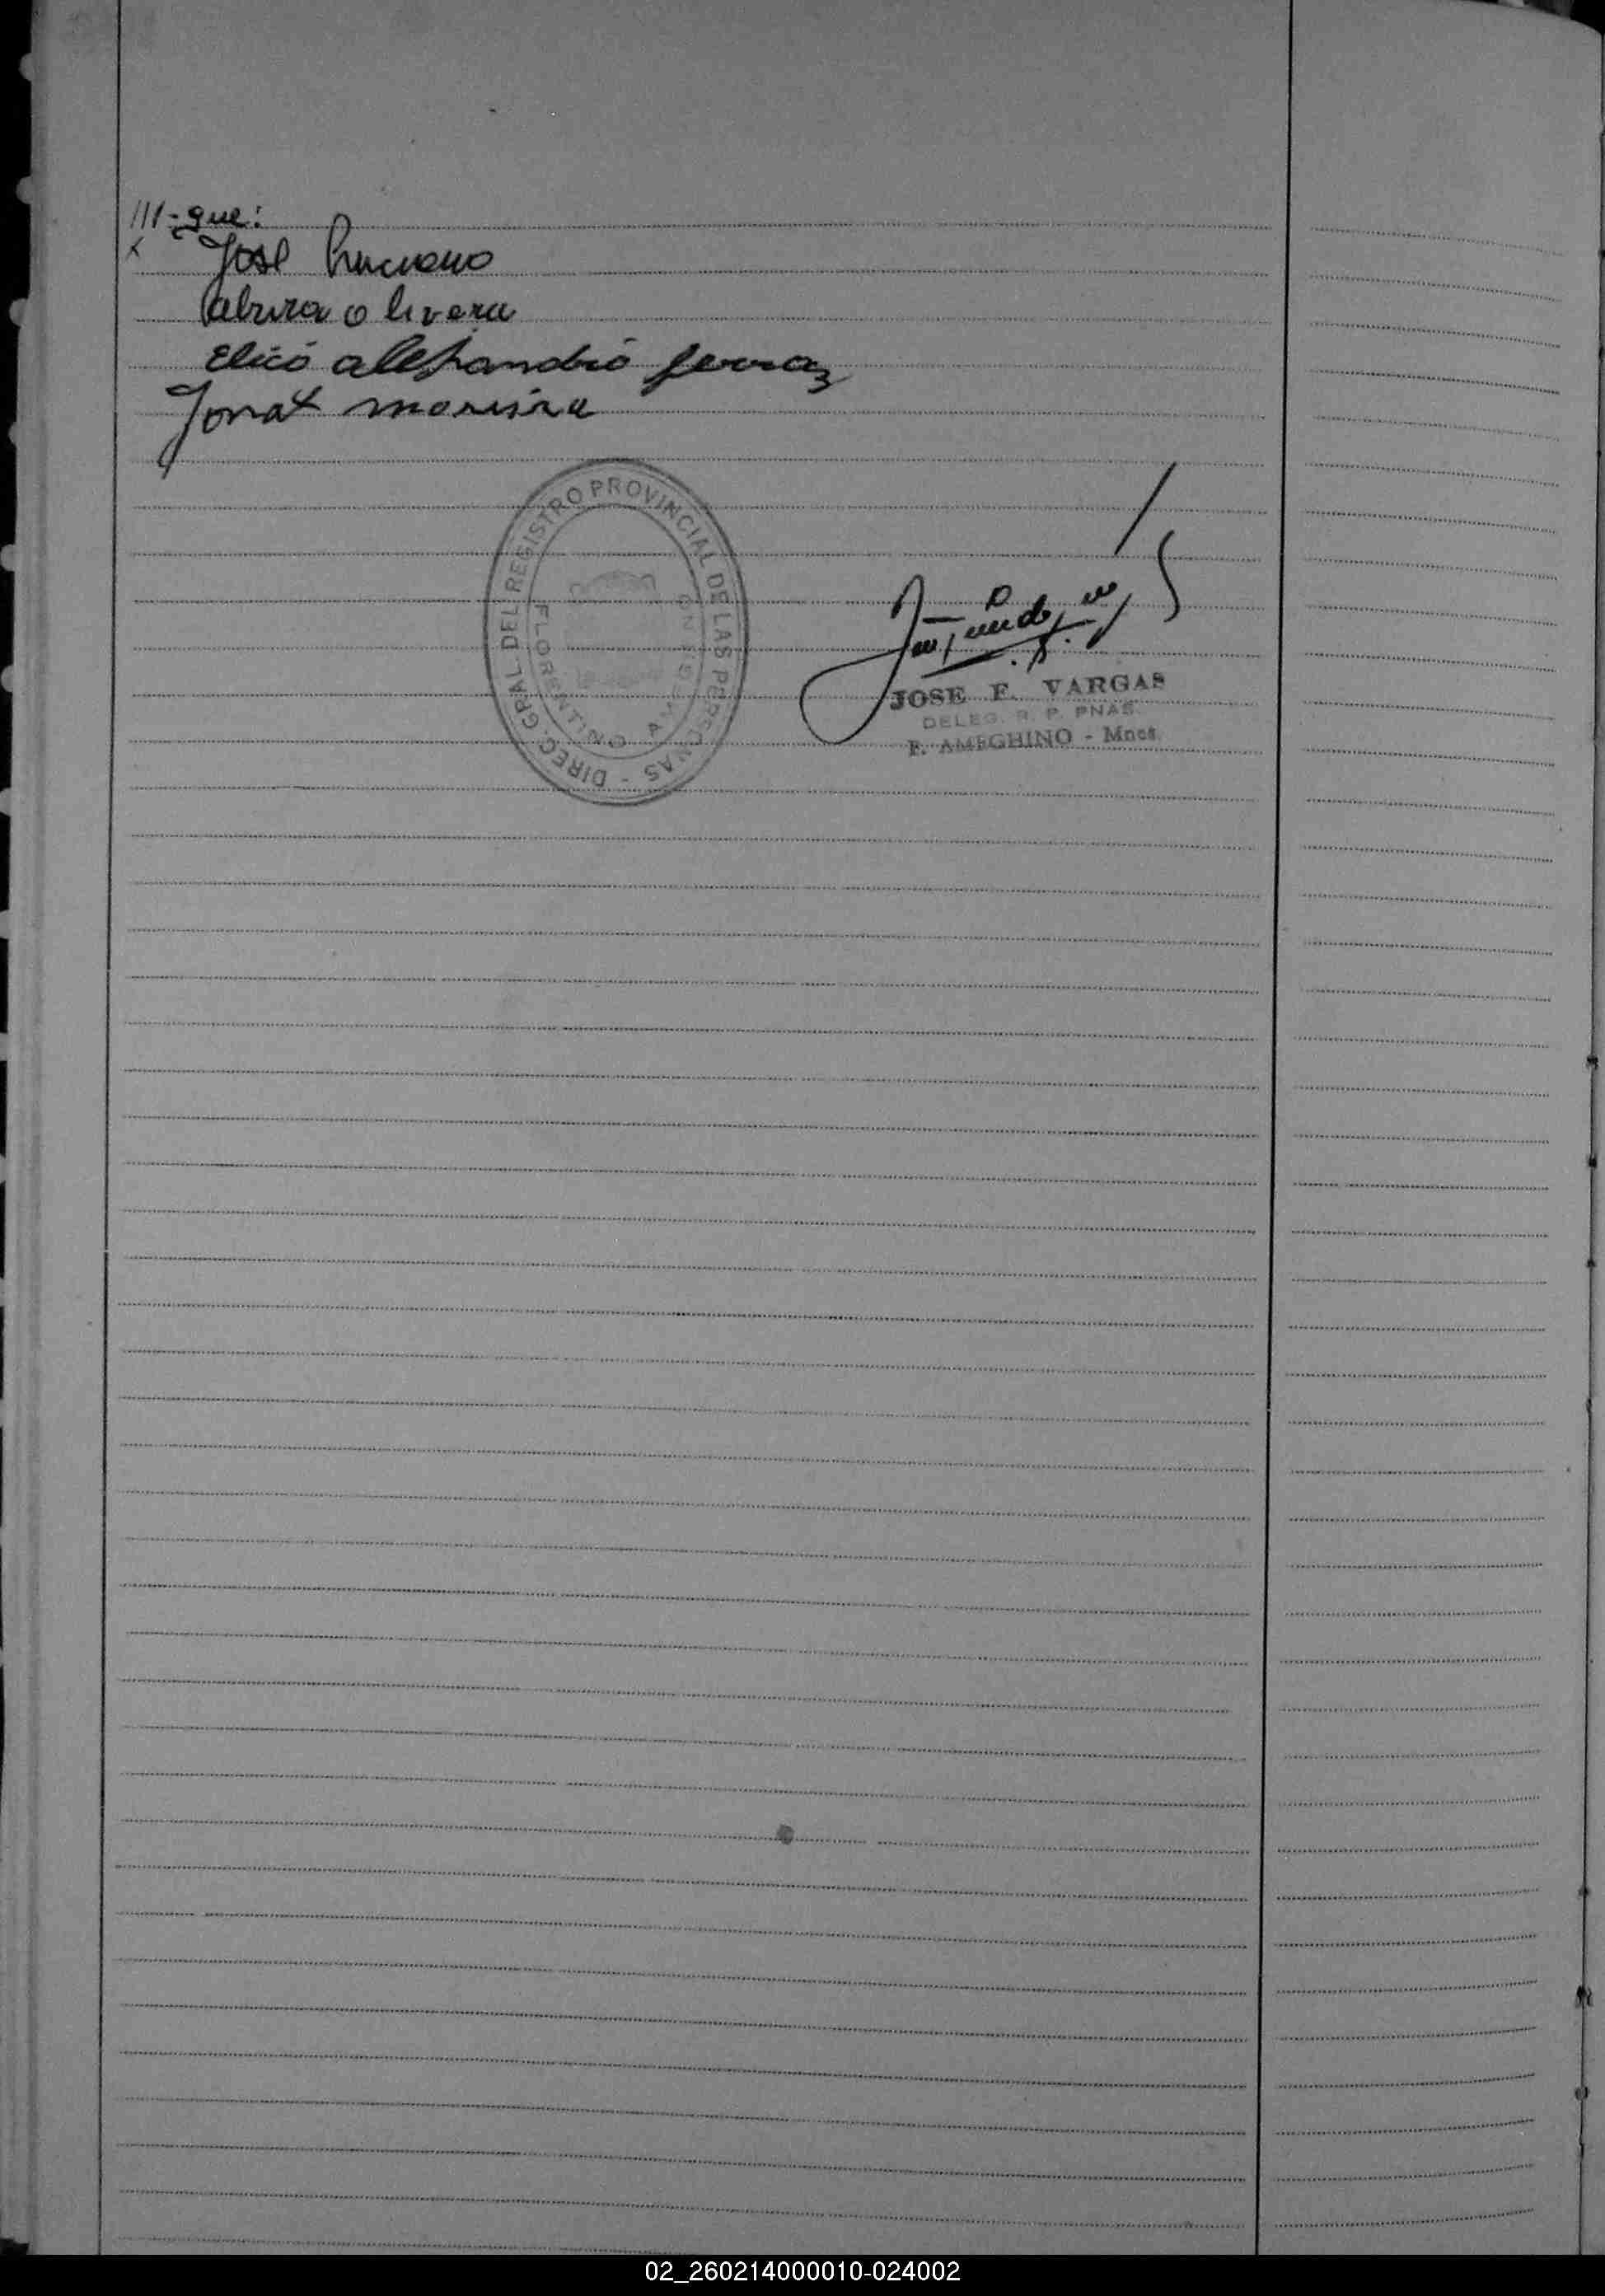 ///-que:
x José Luciano
alzira olivera
Elicó alexandrio ferraz
Jonat moreira
DIREC. GRAL DEL REGISTRO PROVINCIAL DE LAS PERSONAS -
FLORENTINO AMEGHINO
JOSE F. VARGAS
DELEG. R. P. PNAS.
F. AMEGHINO - Mnes
02_260214000010-024002